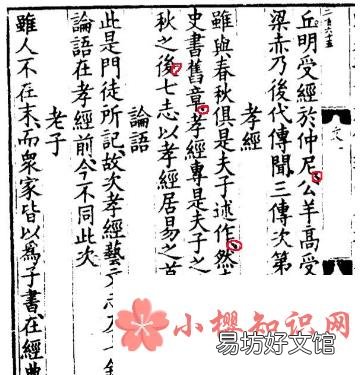 丘明受經於仲尼公羊高受
梁赤乃後代傳聞三傳次第
孝經
雖與春秋俱是夫子述作然
史書舊章孝經專是夫子之
秋之後七志以孝經居易之首
論語
此是門徒所記故次孝經藝
論語在孝經前今不同此次
老子
雖人不在末而衆家皆以爲子書在經典
小樱知识网
易坊好文馆